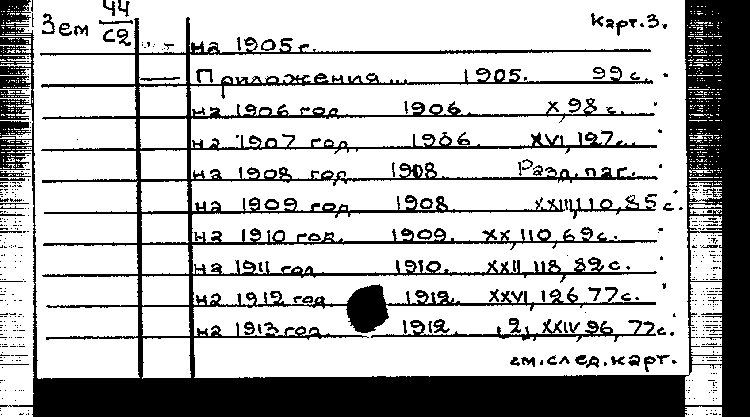 Зем 44/С2 Карт.3.
на 1905 г.
Приложения... 1905. 99 с.
на 1906 год 1906. X, 98 с.
на 1907 год. 1906. XVI, 127 с.
на 1908 год 1908. Разд. паг.
на 1909 год 1908. XXIII, 110, 85 с.
на 1910 год. 1909. XX, 110, 69 с.
на 1911 год 1910. XXII, 118, 82 с.
на 1912 год 1912. XXVI, 126, 77 с.
на 1913 год 1912. 2, XXIV, 96, 77 с.
см. след. карт.